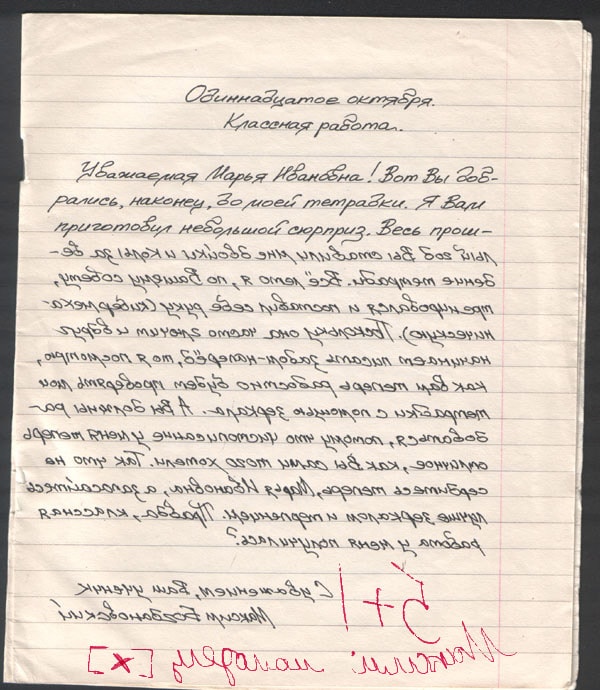 Одиннадцатое октября.
Классная работа.
Уважаемая Марья Ивановна! Вот Вы доб-
рались, наконец, до моей тетрадки. Я Вам
приготовил небольшой сюрприз. Весь прош-
лый год Вы ставили мне двойки и колы за ве-
дение тетради. Всё лето я, по Вашему совету,
тренировался и поставил себе руку (кибермеха-
ническую). Поскольку она часто глючит и вдруг
начинает писать задом-наперёд, то я посмотрю,
как вам теперь радостно будет проверять мои
тетрадки с помощью зеркала. А Вы должны ра-
доваться, потому что чистописание у меня теперь
отличное, как Вы сами того хотели. Так что не
сердитесь теперь, Марья Ивановна, а запасайтесь
лучше зеркалом и терпением. Правда, классная
работа у меня получилась?
С уважением, Ваш ученик
Максим Богдановский
5+!
Максим молодец [x]